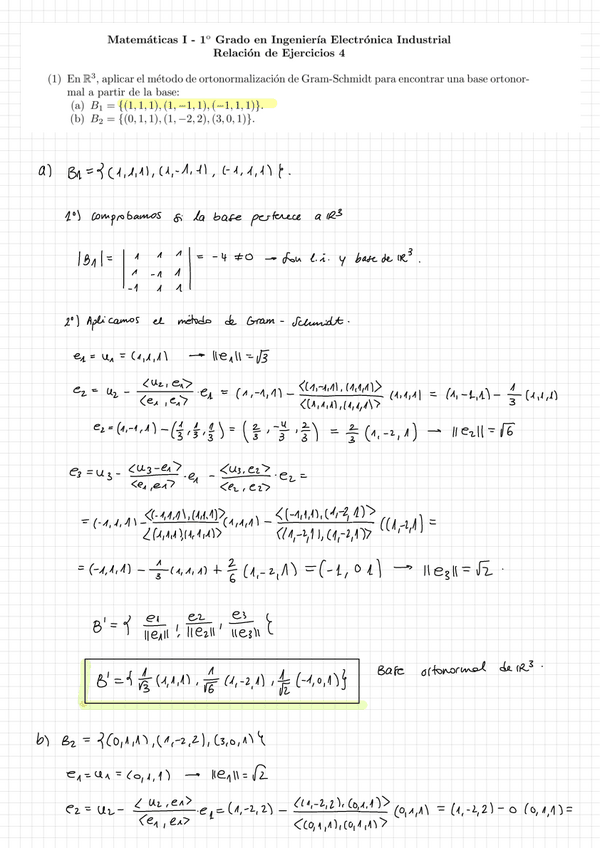 Matemáticas I - 1º Grado en Ingeniería Electrónica Industrial
Relación de Ejercicios 4
(1) En ℝ³, aplicar el método de ortonormalización de Gram-Schmidt para encontrar una base ortonor-
mal a partir de la base:
(a) B₁ = {(1, 1, 1), (1, −1, 1), (−1, 1, 1)}.
(b) B₂ = {(0, 1, 1), (1, −2, 2), (3, 0, 1)}.
a) B₁ = {(1,1,1), (1,-1,1), (-1,1,1)}.
1º) Comprobamos si la base pertenece a ℝ³
|B₁| = | 1 1 1 ; 1 -1 1 ; -1 1 1 | = -4 ≠ 0 → Son l.i. y base de ℝ³.
2º) Aplicamos el método de Gram - Schmidt.
e₁ = u₁ = (1,1,1) → ||e₁|| = √3
e₂ = u₂ - <u₂,e₁>/<e₁,e₁> · e₁ = (1,-1,1) - <(1,-1,1),(1,1,1)>/<(1,1,1),(1,1,1)> (1,1,1) = (1,-1,1) - 1/3 (1,1,1)
e₂ = (1,-1,1) - (1/3, 1/3, 1/3) = (2/3, -4/3, 2/3) = 2/3 (1,-2,1) → ||e₂|| = √6
e₃ = u₃ - <u₃-e₁>/<e₁,e₁> · e₁ - <u₃,e₂>/<e₂,e₂> · e₂ =
= (-1,1,1) - <(-1,1,1),(1,1,1)>/<(1,1,1)(1,1,1)> (1,1,1) - <(-1,1,1),(1,-2,1)>/<(1,-2,1),(1,-2,1)> ((1,-2,1) =
= (-1,1,1) - 1/3 (1,1,1) + 2/6 (1,-2,1) = (-1,0 1) → ||e₃|| = √2.
B' = { e₁/||e₁|| , e₂/||e₂|| , e₃/||e₃|| {
B' = { 1/√3 (1,1,1), 1/√6 (1,-2,1), 1/√2 (-1,0,1)} Base ortonormal de ℝ³.
b) B₂ = {(0,1,1), (1,-2,2), (3,0,1) {
e₁ = u₁ = (0,1,1) → ||e₁|| = √2
e₂ = u₂ - <u₂,e₁>/<e₁,e₁> · e₁ = (1,-2,2) - <(1,-2,2),(0,1,1)>/<(0,1,1),(0,1,1)> (0,1,1) = (1,-2,2) - 0 (0,1,1) =